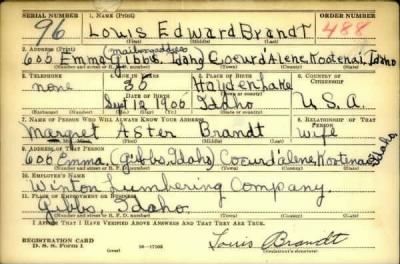 SERIAL NUMBER 1. NAME (Print) ORDER NUMBER
96 Louis Edward Brandt 488
(First) (Middle) (Last)
2. ADDRESS (Print) mailing address
600 Emma, Gibbs, Idaho Coeurd'Alene, Kootenai, Idaho
(Number and street or R. F. D. number) (Town) (County) (State)
3. TELEPHONE 4. AGE IN YEARS 5. PLACE OF BIRTH 6. COUNTRY OF CITIZENSHIP
none 35 Hayden Lake
DATE OF BIRTH
Sept 12 1905 Idaho U.S.A.
7. NAME OF PERSON WHO WILL ALWAYS KNOW YOUR ADDRESS 8. RELATIONSHIP OF THAT PERSON
Margret Aster Brandt wife
(First) (Middle) (Last)
9. ADDRESS OF THAT PERSON
600 Emma, (Gibbs, Idaho) Coeurdalene, Kootenai Idaho
(Number and street or R. F. D. number) (Town) (County) (State)
10. EMPLOYER'S NAME
Winton Lumbering Company.
11. PLACE OF EMPLOYMENT OR BUSINESS
Gibbs, Idaho.
(Number and street or R. F. D. number) (Town) (County) (State)
I AFFIRM THAT I HAVE VERIFIED ABOVE ANSWERS AND THAT THEY ARE TRUE.
REGISTRATION CARD
D. S. S. Form 1 16-17105 Louis Brandt
(Registrant's signature)